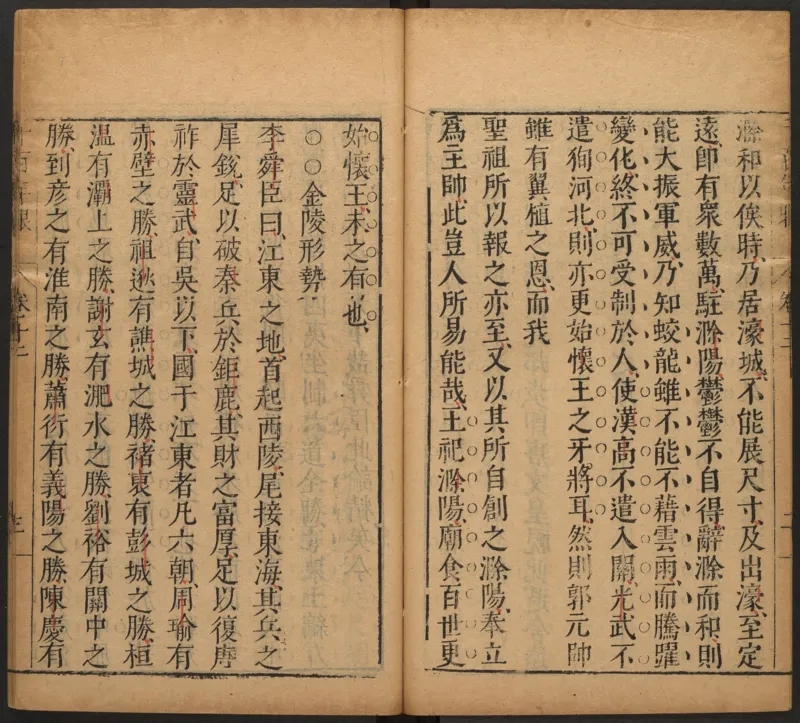 滁和以俟時乃居濠城不能展尺寸及出濠至定
遠卽有衆數萬駐滁陽鬱鬱不自得辭滁而和則
能大振軍威乃知蛟龍雖不能不藉雲雨而騰躍
變化終不可受制於人使漢高不遣入關光武不
遣狥河北則亦更始懷王之牙將耳然則郭元帥
雖有翼植之恩而我
聖祖所以報之亦至又以其所自創之滁陽奉立
爲主帥此豈人所易能哉王祀滁陽廟食百世更
始懷王未之有也
○○金陵形勢
李舜臣曰江東之地首起西陵尾接東海其兵之
犀銳足以破秦兵於鉅鹿其財之富厚足以復唐
祚於靈武自吳以下國于江東者凡六朝周瑜有
赤壁之勝祖逖有譙城之勝褚裒有彭城之勝桓
溫有灞上之勝謝玄有淝水之勝劉裕有關中之
勝到彥之有淮南之勝蕭衍有義陽之勝陳慶有